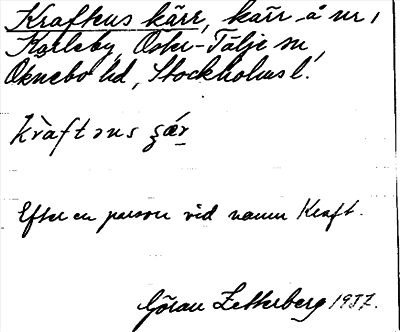 Kraftens kärr, kärr å nr 1
Karleby, Öster-Tälje sn,
Öknebo hd, Stockholms l.
kràftəns çǽr
Efter en person vid namn Kraft.
Göran Zetterberg 1937.